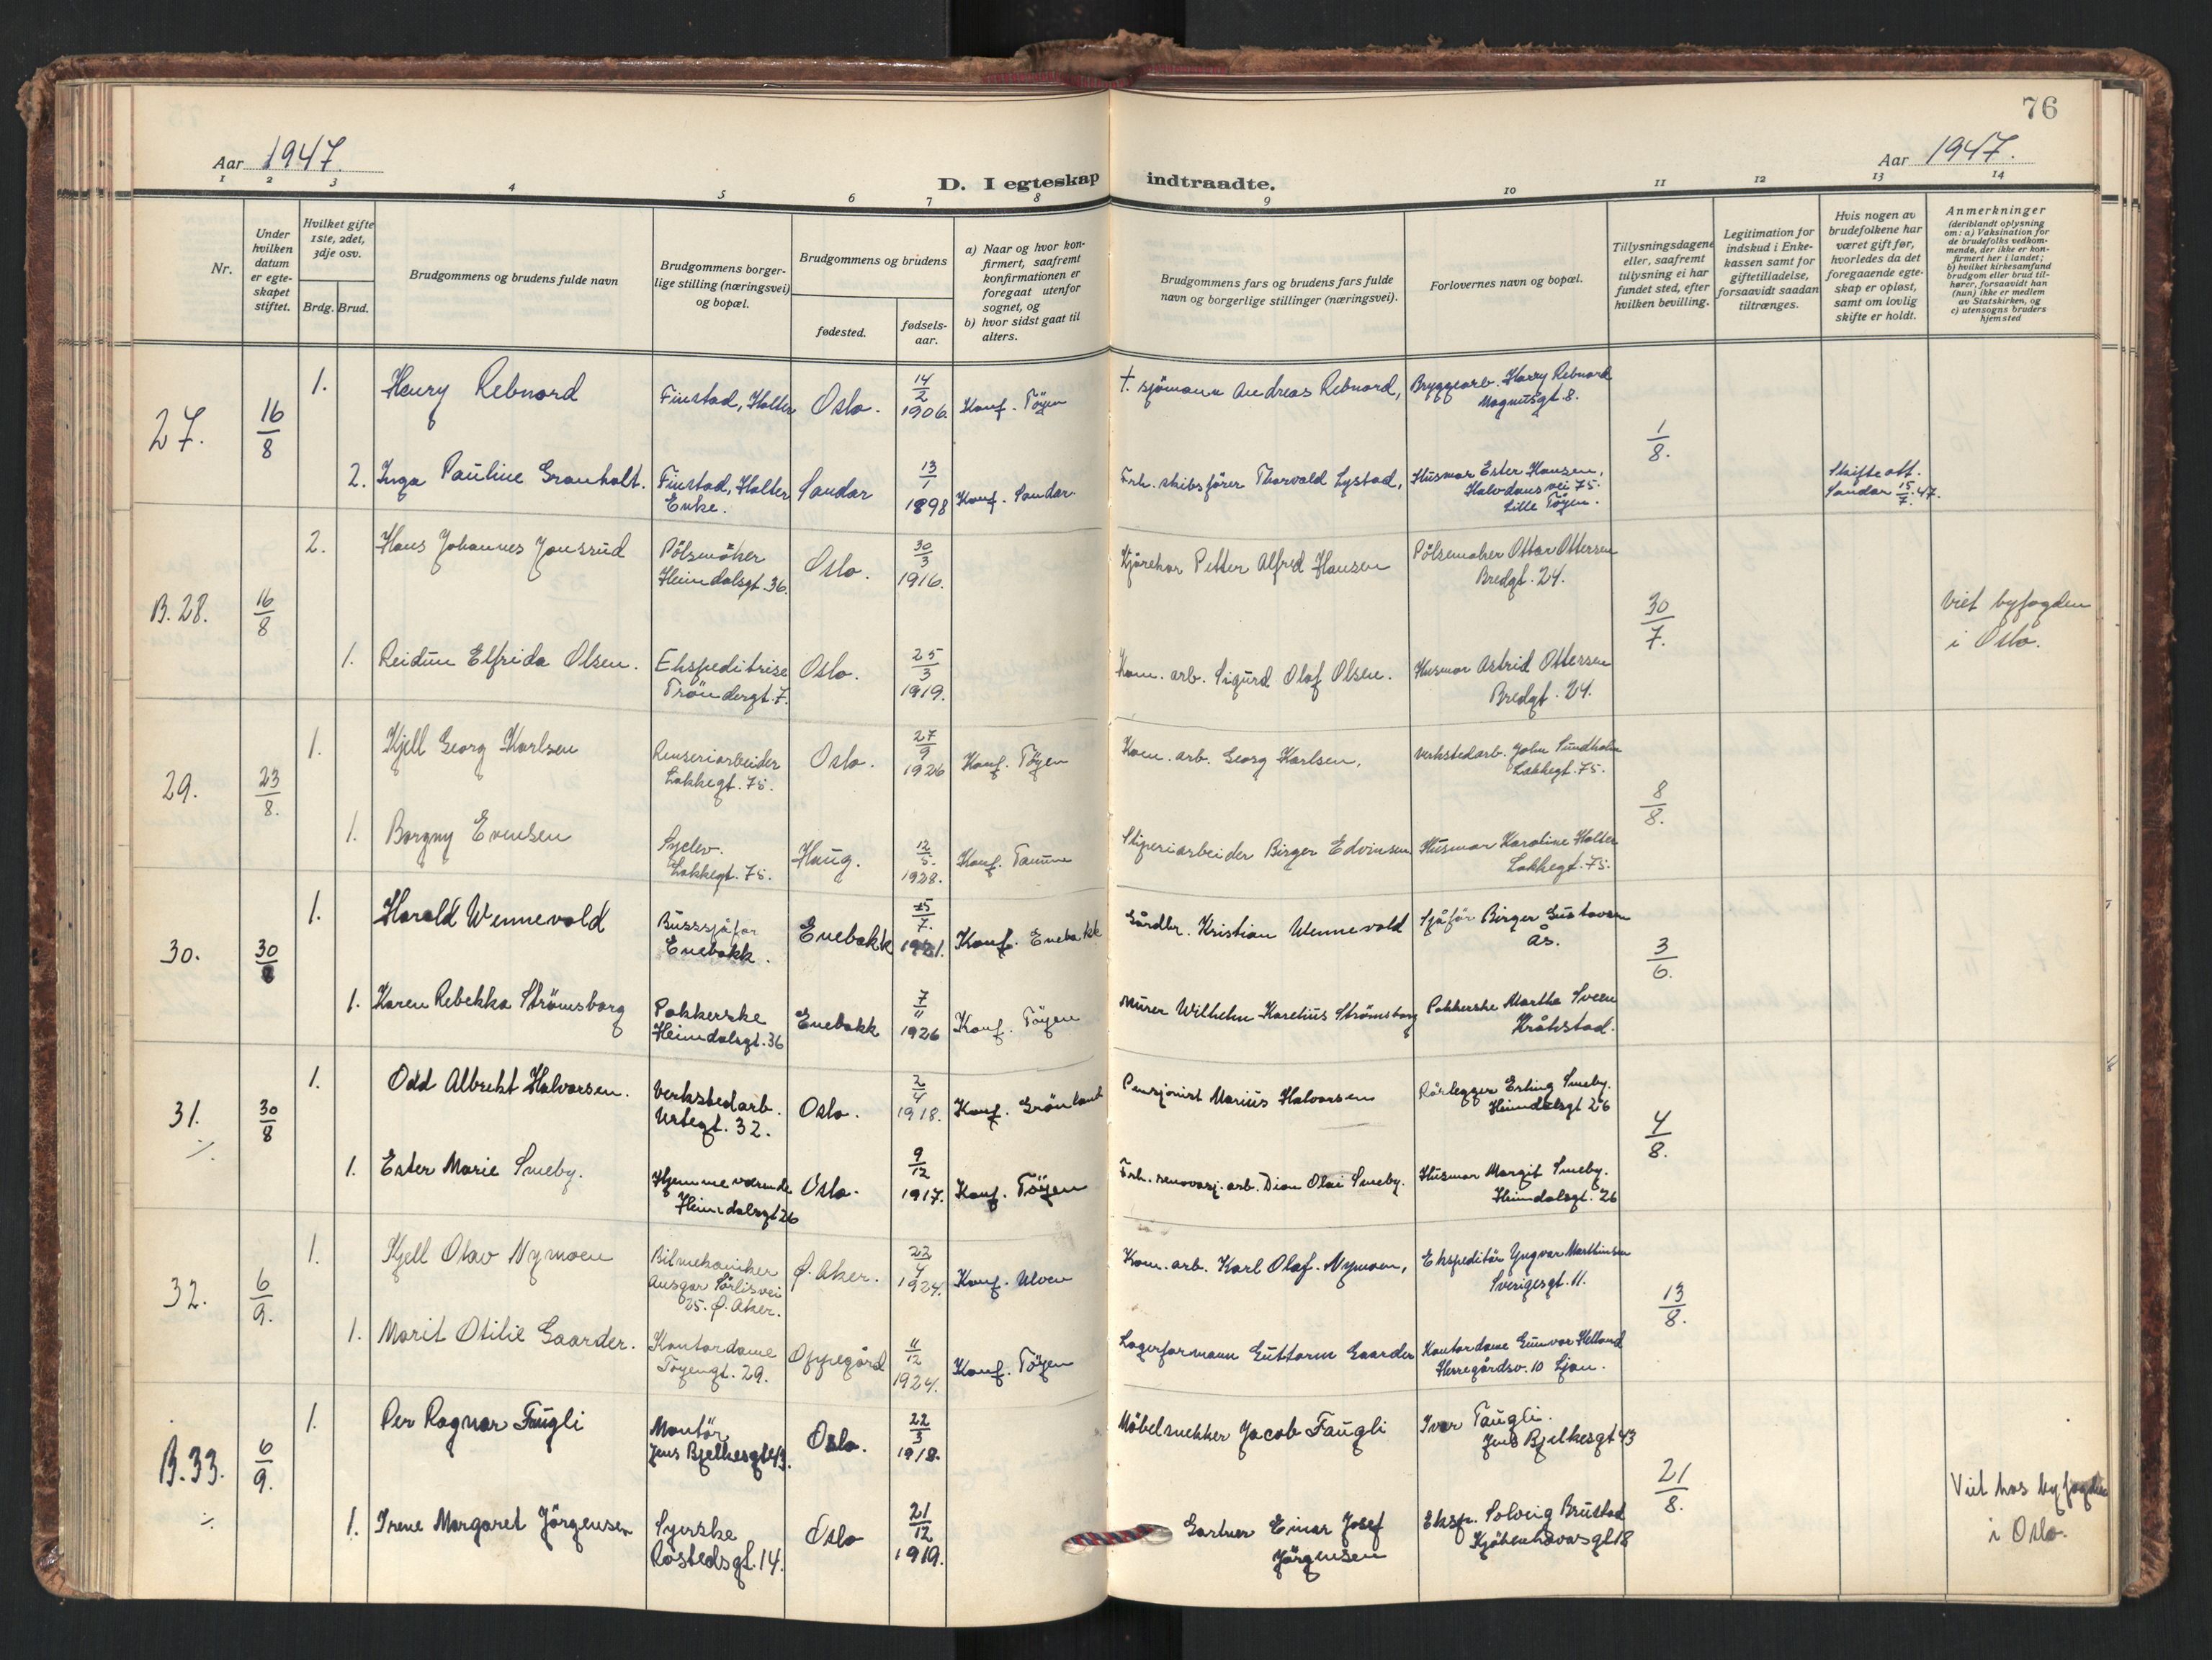 76
Aar 1947.
Aar 1947.
D. I egteskap indtraadte.
1 2 3 4 5 6 7 8 9 10 11 12 13 14
Nr.
Under hvilken datum er egte-skapet stiftet.
Hvilket gifte 1ste, 2det, 3dje osv.
Brdg. Brud.
Brudgommens og brudens fulde navn
Brudgommens borger-
lige stilling (næringsvei)
og bopæl.
Brudgommens og brudens
fødested.
fødsels-
aar.
a) Naar og hvor kon-
firmert, saafremt
konfirmationen er
foregaat utenfor
sognet, og
b) hvor sidst gaat til
alters.
Brudgommens fars og brudens fars fulde
navn og borgerlige stillinger (næringsvei).
Forlovernes navn og bopæl.
Tillysningsdagene
eller, saafremt
tillysning ei har
fundet sted, efter
hvilken bevilling.
Legitimation for
indskud i Enke-
kassen samt for
giftetilladelse,
forsaavidt saadan
tiltrænges.
Hvis nogen av
brudefolkene har
været gift før,
hvorledes da det
foregaaende egte-
skap er opløst,
samt om lovlig
skifte er holdt.
Anmerkninger
(deriblandt oplysning
om: a) Vaksination for
de brudefolks vedkom-
mende, der ikke er kon-
firmert her i landet;
b) hvilket kirkesamfund
brudgom eller brud til-
hører, forsaavidt han
(hun) ikke er medlem
av Statskirken, og
c) utensogns bruders
hjemsted
27. 16/8 1. Henry Rebnord Finstad, Holter Oslo. 14/2 1906. Konf. Töyen † sjömann Andreas Rebnord, Bryggearb. Harry Rebnord
Magnusgt 8.
1/8.
2. Inga Pauline Granholt. Finstad, Holter
Enke. Sandar 13/1 1898 Konf. Sandar. Frh. skibsfører Thorvald Lystad, Husmor Ester Hansen,
Halvdansvei 75.
Lille Töyen.
Skifteatt.
Sandar 15/7. 47.
B. 28. 16/8 2. Hans Johannes Jonsrud Pölsemaker
Heimdalsgt. 36. Oslo. 30/3 1916. Kjörekar Petter Alfred Hansen Pölsemaker Ottar Ottersen
Bredgt. 24.
30/7. Viet byfogden
i Oslo.
1. Reidun Elfrida Olsen. Ekspeditrise
Tröndergt. 7. Oslo. 25/3 1919. Kom. arb. Sigurd Olaf Olsen. Husmor Astrid Ottersen
Bredgt. 24.
29. 23/8. 1. Kjell Georg Karlsen Renseriarbeider
Lakkegt. 75. Oslo. 27/9 1926 Konf. Töyen Kom. arb. Georg Karlsen, Verkstedarb. John Sundholm
Lakkegt. 75.
8/8.
1. Borgny Evensen Syelev.
Lakkegt. 75. Haug. 12/5. 1928. Konf. Tanum Sliperiarbeider Birger Edvinsen Husmor Karoline Holter
Lakkegt. 75.
30. 30/8 1. Harald Wennevold Busssjåfør
Enebakk. Enebakk 25/7. 1921. Konf. Enebakk Gårdbr. Kristian Wennevold Sjåför Birger Gustavsen
Ås.
3/6.
1. Karen Rebekka Strömsborg Pakkerske
Heimdalsgt. 36 Enebakk 7/11 1926 Konf. Töyen Murer Wilhelm Karelius Strömsborg Pakkerske Martha Sveen
Kråkstad.
31. 30/8 1. Odd Albrekt Halvorsen. Verkstedarb.
Urtegt. 32. Oslo. 2/4 1918. Konf. Grönland Pensjonist Marius Halvorsen Rörlegger Erling Smeby.
Heimdalsgt 26
4/8.
1. Ester Marie Smeby. Hjemmeværende
Heimdalsgt 26 Oslo. 9/12 1917. Konf. Töyen Frh. renovasj. arb. Dion Olai Smeby. Husmor Margit Smeby.
Heimdalsgt. 26
32. 6/9. 1. Kjell Olav Nymoen Bilmekaniker
Ansgar Sörlisvei
25. Ø. Aker. Ø. Aker. 22/4 1924. Konf. Ulven Kom. arb. Karl Olaf. Nymoen, Ekspeditör Yngvar Marthinsen
Sverigesgt. 11.
13/8.
1. Marit Otilie Gaarder. Kontordame
Töyengt. 29. Oppegård 11/12 1924. Konf. Töyen Lagerformann Guttorm Gaarder Kontordame Gunvor Helland
Herregårdsv. 10 Ljan.
B. 33. 6/9. 1. Per Ragnar Faugli Montör
Jens Bjelkesgt 43. Oslo. 22/3 1918. Möbelsnekker Jacob Faugli Ivar Faugli.
Jens Bjelkesgt 43
21/8. Viet hos byfogden
i Oslo.
1. Irene Margaret Jörgensen Syerske
Rostedsgt. 14. Oslo 21/12 1919. Gartner Einar Josef
Jörgensen Eksp. Solveig Brustad
Kjöbenhavnsgt 18